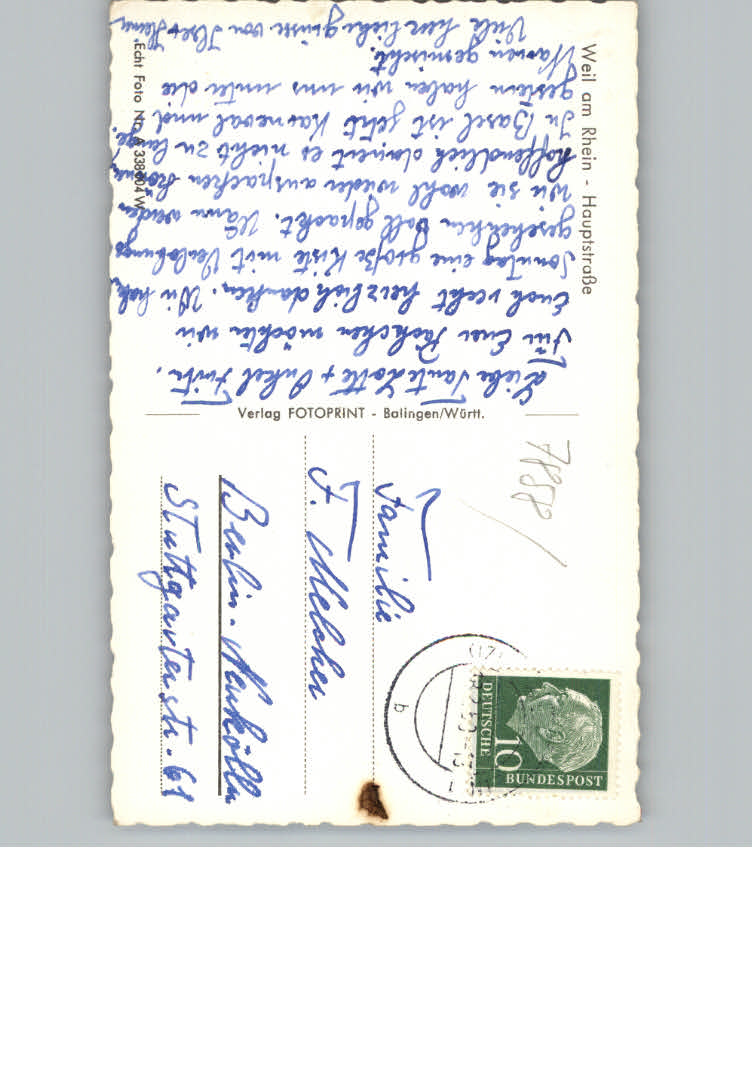 Weil am Rhein - Hauptstraße
Liebe Tante Lotte + Onkel Fritz,
Für Euer Päckchen möchten wir
Euch recht herzlich danken. Wir hab.
Sonntag eine große Kiste mit Verlobungs
geschenken voll gepackt. Wann werden
wir sie wohl wieder auspacken können,
hoffendlich dauert es nicht zu lange.
In Basel ist jetzt Karneval und
gestern haben wir uns unter die
Narren gemischt.
Viele herzliche Grüsse von Ilse + Heinz
"Echt Foto Nr. A 338604 W
Verlag FOTOPRINT - Balingen/Württ.
7858
Familie
F. Melcher
Berlin-Neukölln
Stuttgarterstr. 61
DEUTSCHE
10
BUNDESPOST
b